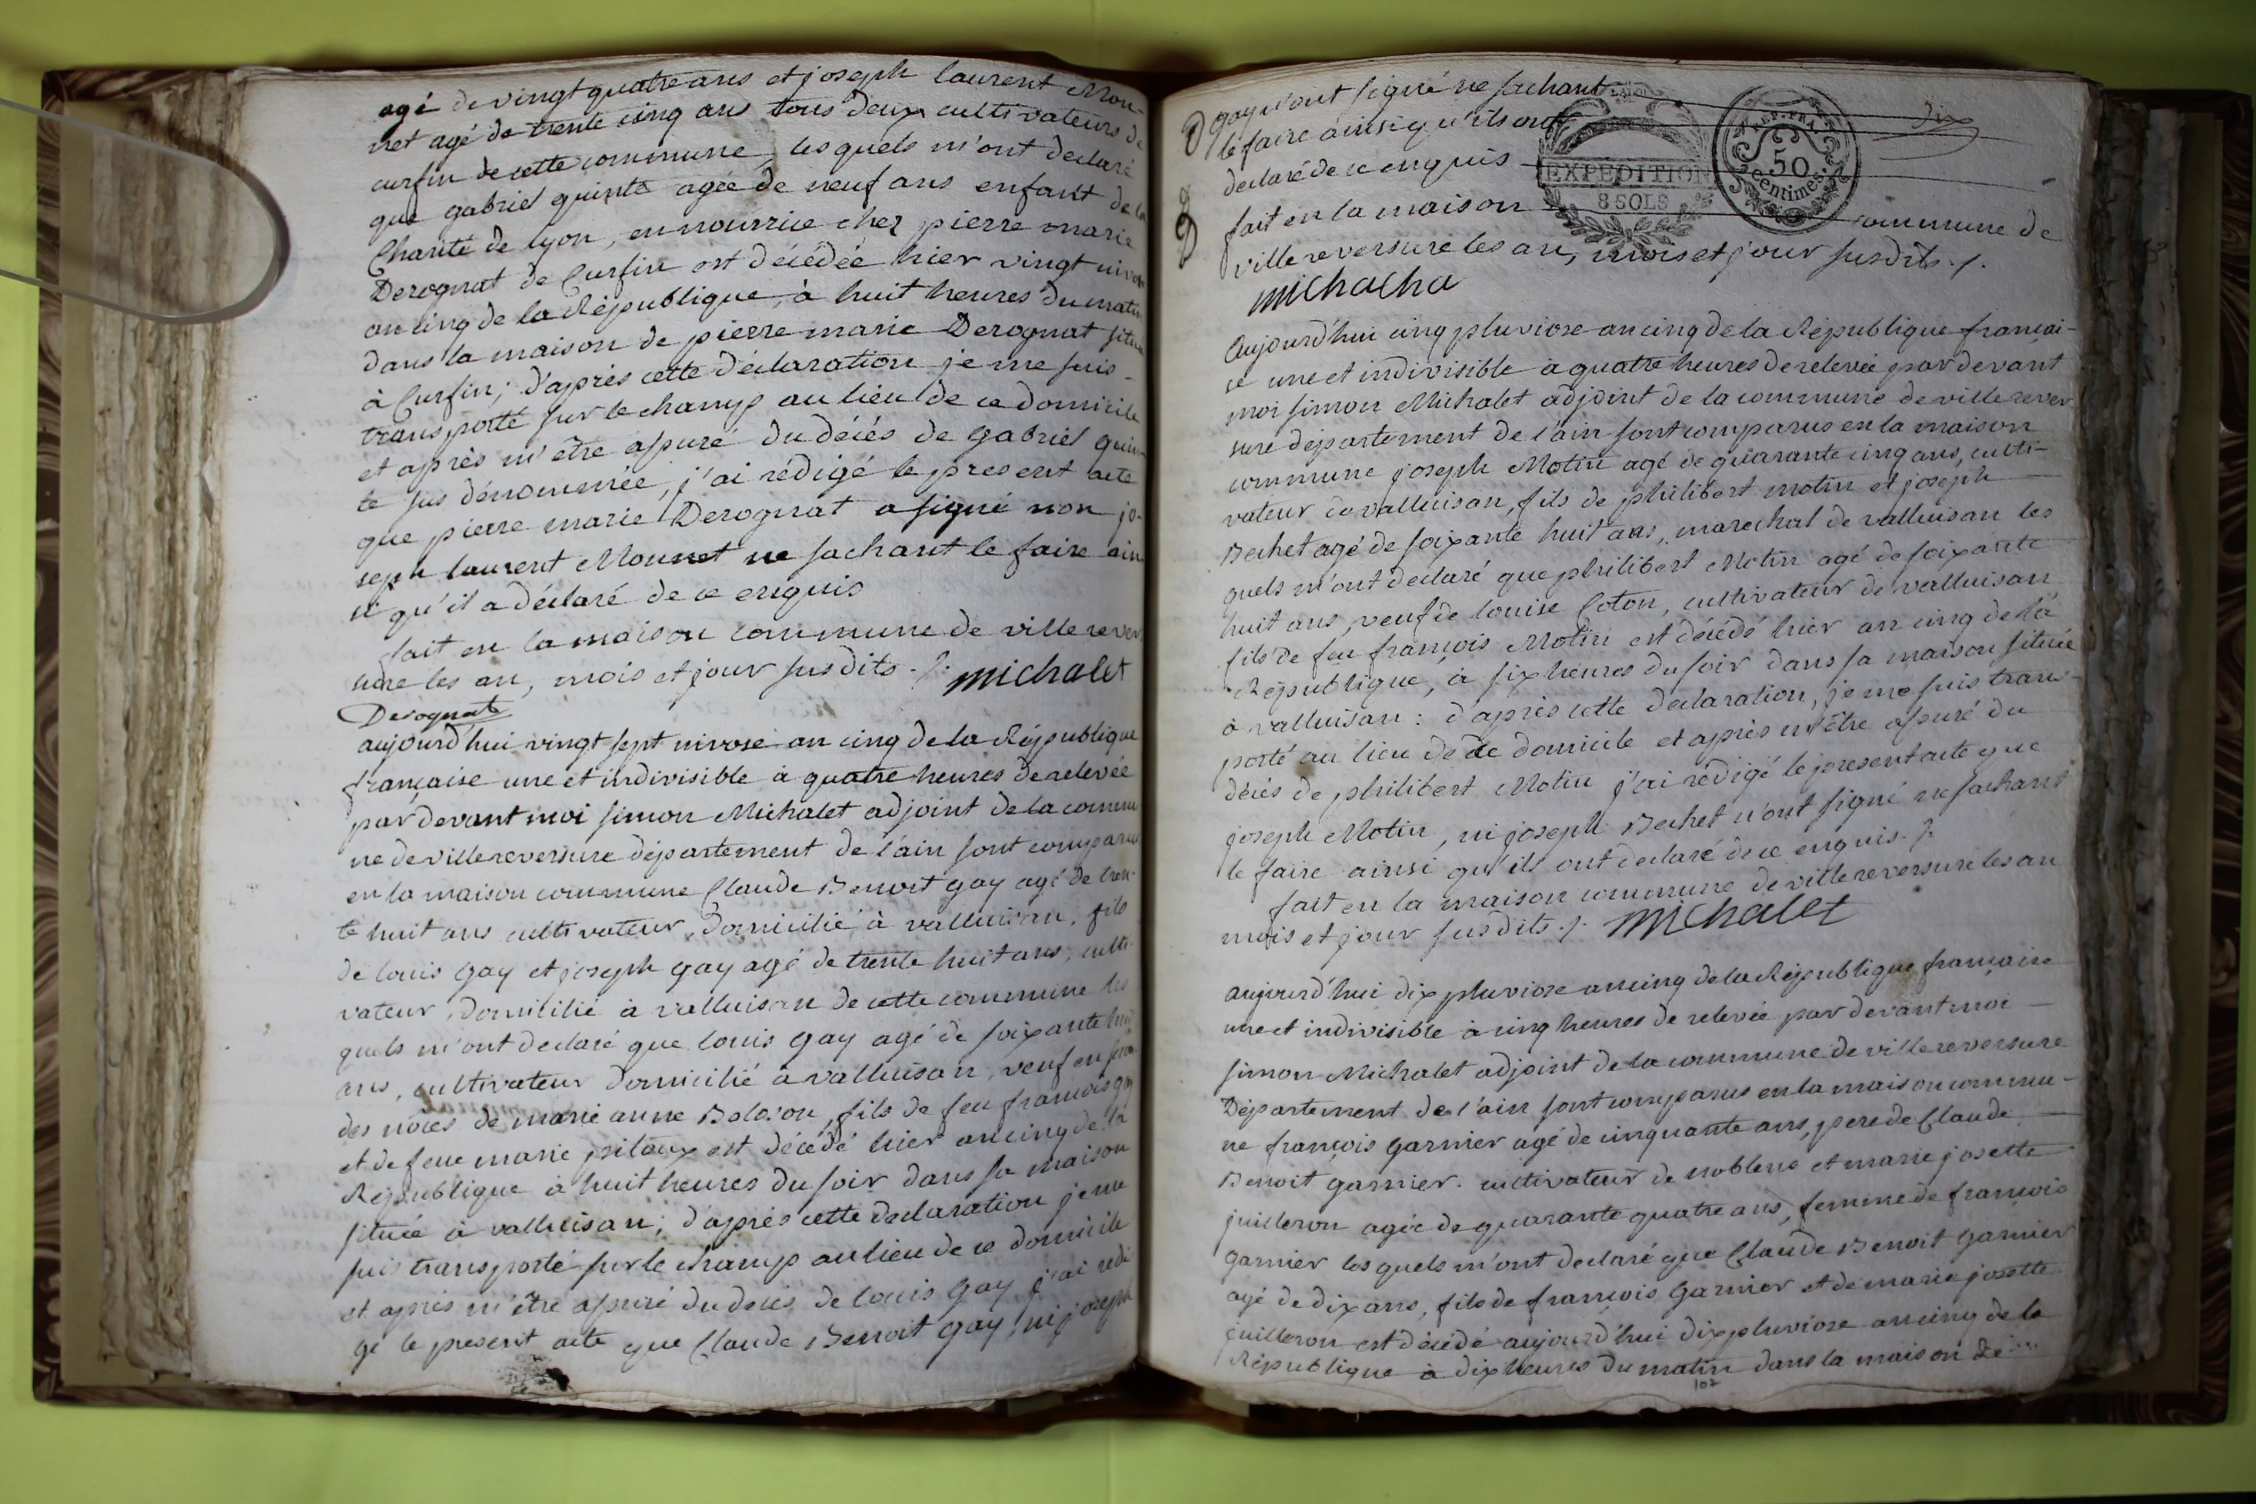 agé de vingt quatre ans et joseph laurent Mon-
net agé de trente cinq ans tous deux cultivateurs de
curfin de cette commune, les quels m'ont declaré
que gabriel quinte agée de neuf ans enfant de la
Charité de lyon, en nourrice chez pierre marie
Derognat de Curfin est décédée hier vingt nivose
an cinq de la République, à huit heures du matin
dans la maison de pierre marie Derognat située
à Curfin; d'après cette déclaration je me suis
transporté sur le champ au lieu de ce domicile
et après m'être assuré du décés de gabriel quin-
te sus dénommée, j'ai rédigé le present acte
que pierre marie Derognat a signé non jo-
seph laurent Monnet ne sachant le faire ain
si qu'il a déclaré de ce enquis
fait en la maison commune de ville rever
sure les an, mois et jour susdits ./. michalet
Derognat
aujourd'hui vingt sept nivose an cinq de la République
française une et indivisible à quatre heures de relevée
par devant moi simon Michalet adjoint de la commu
ne de villereversure département de l'ain sont comparus
en la maison commune Claude Benoit gay agé de tren-
te huit ans cultivateur, domicilié à valluisan, fils
de louis gay et joseph gay agé de trente huit ans, culti-
vateur, domicilié à valluisan de cette commune les
quels m'ont declaré que louis gay agé de soixante huit
ans, cultivateur domicilié à valluisan, veuf en secon
des nôces de marie anne, fils de feu françois gay
et de feue marie piloux est décédé hier an cinq de la
République à huit heures du soir dans sa maison
située à valluisan; d'après cette declaration je me
suis transporté sur le champ au lieu de ce domicile
et après m'être assuré du décés de louis gay j'ai redi
gé le present acte que Claude Benoit gay, ni joseph
gay n'ont signé ne sachant
le faire ainsi qu'ils ont
declaré de ce enquis
dix
EXPÉDITION
8 SOLS
RÉP. FRA.
50
centimes.
fait en la maison commune de
villereversure les an, mois et jour susdits ./.
michacha
Aujourd'hui cinq pluviose an cinq de la République françai-
se une et indivisible à quatre heures de relevée par devant
moi simon Michalet adjoint de la commune de ville rever
sure département de l'ain sont comparus en la maison
commune joseph Motin agé de quarante cinq ans, culti-
vateur de valluisan, fils de philibert motin et joseph
Bechet agé de soixante huit ans, marechal de valluisan les
quels m'ont declaré que philibert Motin agé de soixante
huit ans, veuf de louise Coton, cultivateur de valluisan
fils de feu françois Motin est décédé hier an cinq de la
République, à six heures du soir dans sa maison située
à valluisan: d'après cette declaration, je me suis trans-
porté au lieu de ce domicile et après m'être assuré du
décés de philibert Motin j'ai rédigé le present acte que
joseph Motin, ni joseph Bechet n'ont signé ne sachant
le faire ainsi qu'ils ont declaré de ce enquis ./.
fait en la maison commune de villereversure les an
mois et jour susdits ./. michalet
aujourd'hui dix pluviose an cinq de la République française
une et indivisible à cinq heures de relevée par devant moi
simon Michalet adjoint de la commune de villereversure
Département de l'ain sont comparus en la maison commu-
ne françois garnier agé de cinquante ans, pere de Claude
Benoit garnier. cultivateur de noblens et marie josette
juilleron agée de quarante quatre ans, femme de françois
garnier les quels m'ont declaré que Claude Benoit garnier
agé de dix ans, fils de françois Garnier et de marie josette
juilleron est décédé aujourd'hui dix pluviose an cinq de la
République à dix heures du matin dans la maison de
102